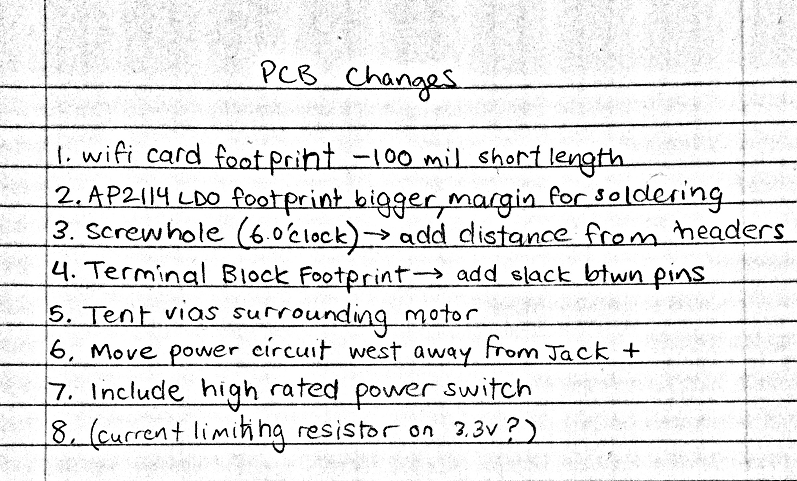 PCB Changes
1. wifi card footprint -100 mil short length
2. AP2114 LDO footprint bigger, margin for soldering
3. Screwhole (6 o'clock) → add distance from headers
4. Terminal Block Footprint → add slack btwn pins
5. Tent vias surrounding motor
6. Move power circuit west away from Jack +
7. Include high rated power switch
8. (current limiting resistor on 3.3v?)